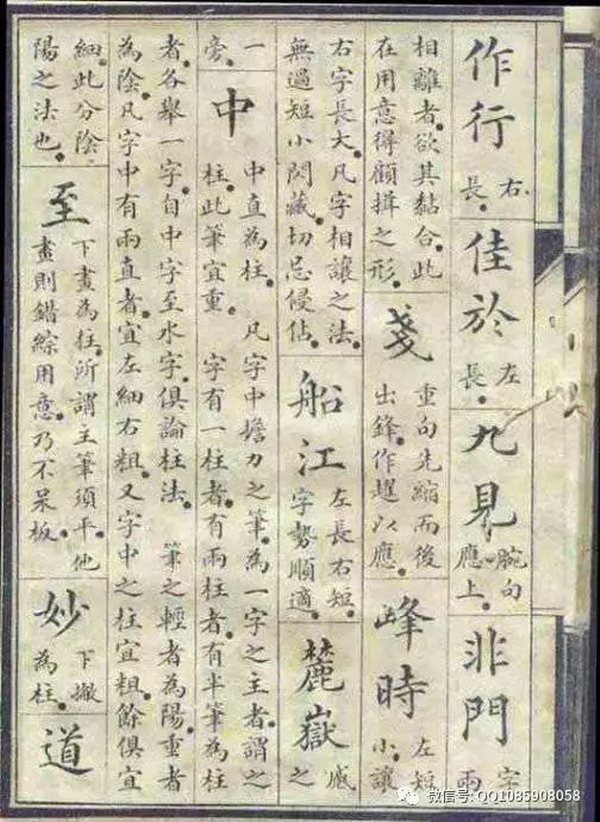 作行
右
長。
佳於
左
長。
九見
腕勾
應上。
非門
字
兩
相離者。欲其黏合。此
在用意得顧揖之形。
戔
重勾先縮而後
出鋒。作趯以應。
峰時
左短
小讓
右字長大。凡字相讓之法。
無過短小閃藏。切忌侵佔。
船江
左長右短。
字勢順適。
麓嶽
戚
之
一
旁。
中
中直為柱。 凡字中擔力之筆。為一字之主者。謂之
柱。此筆宜重。 字有一柱者。有兩柱者。有半筆為柱
者。各舉一字。自中字至水字。俱論柱法。 筆之輕者為陽。重者
為陰。凡字中有兩直者。宜左細右粗。又字中之柱宜粗。餘俱宜
細。此分陰
陽之法也。
至
下畫為柱。所謂主筆須平。他
畫則錯綜用意。乃不呆板。
妙
下撇
為柱。
道
微信号: QQ1085908058